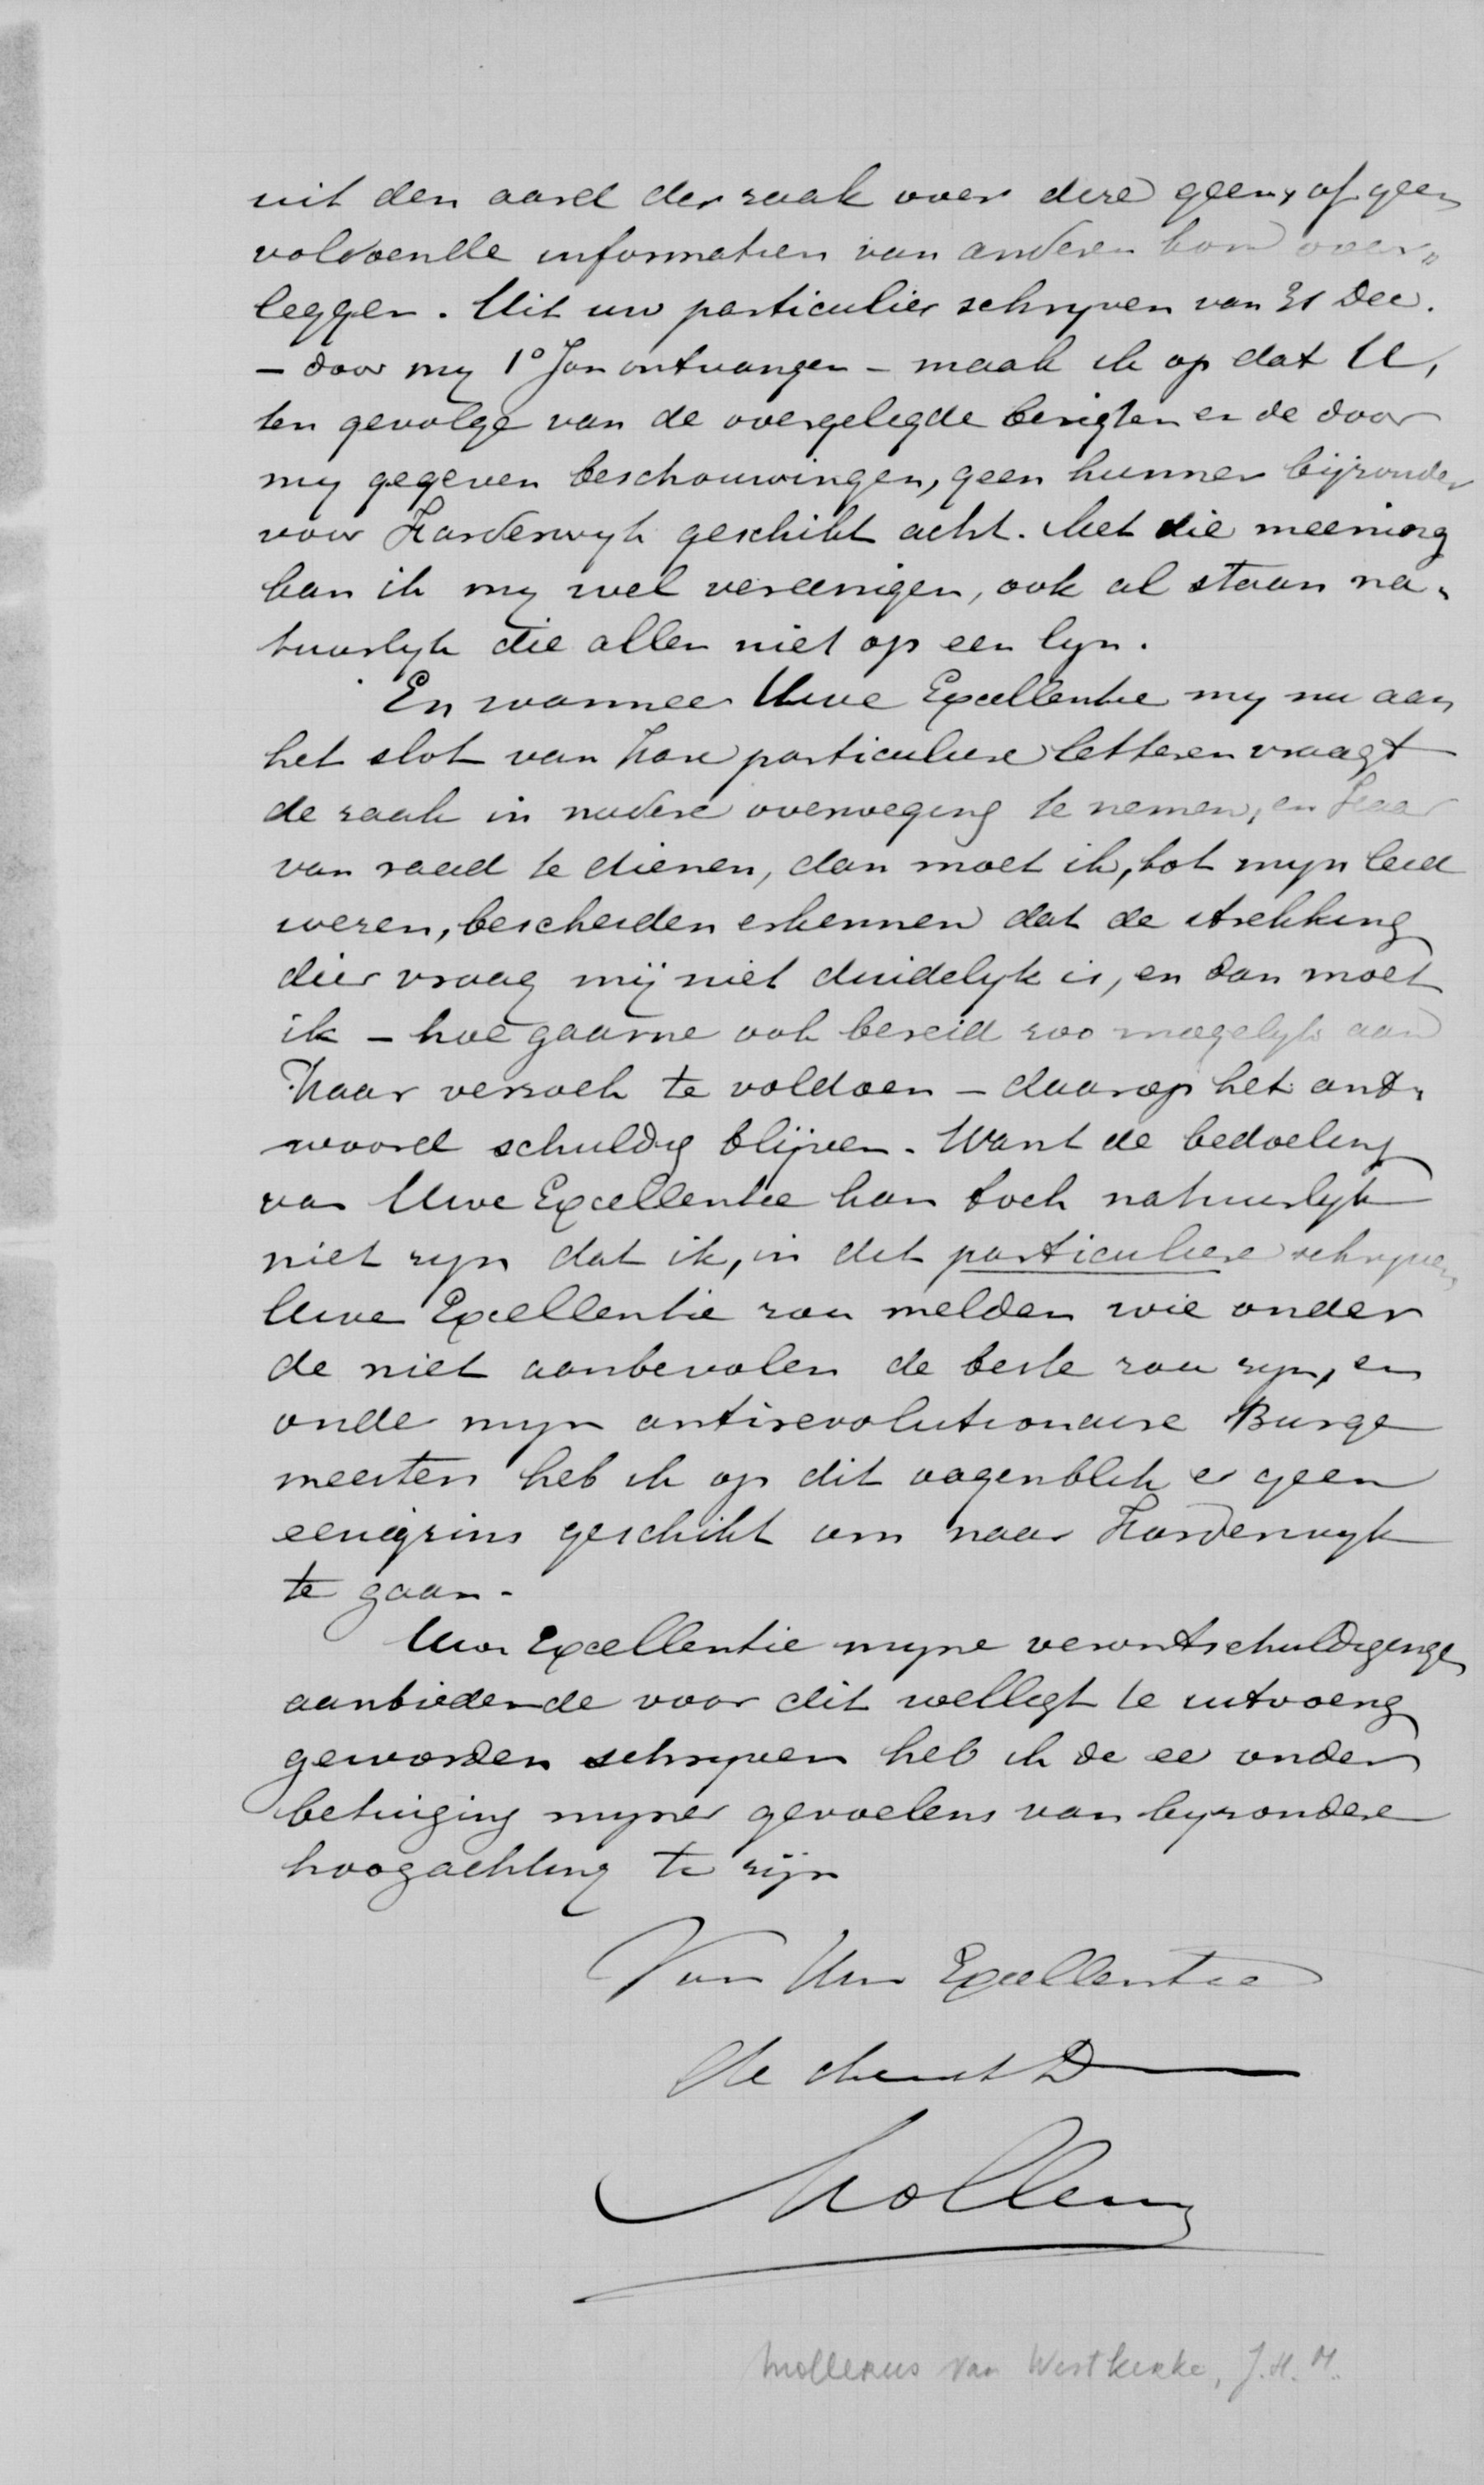 uit den aard der zaak over deze geen, of geen
voldoende informatien van anderen kon over„
leggen. Uit uw particulier schrijven van 31 Dec.
– door mij 1° Jan ontvangen – maak ik op dat U,
ten gevolge van de overgelegde berigten en de door
mij gegeven beschouwingen, geen hunner bijzonder
voor Harderwijk geschikt acht. Met die meening
kan ik mij wel vereenigen, ook al staan na„
tuurlijk die allen niet op een lijn.
En wanneer Uwe Excellentie mij nu aan
het slot van hare particuliere letteren vraagt
de zaak in nadere overweging te nemen, en Haar
van raad te dienen, dan moet ik, tot mijn leed
wezen, bescheiden erkennen dat de strekking
dier vraag mij niet duidelijk is, en dan moet
ik – hoe gaarne ook bereid zoo mogelijk aan
Haar verzoek te voldoen – daarop het ant„
woord schuldig blijven. Want de bedoeling
van Uwe Excellentie kan toch natuurlijk
niet zijn dat ik, in dit particuliere schrijven,
Uwe Excellentie zou melden wie onder
de niet aanbevolen de beste zou zijn, en
onder mijn antirevolutionaire Burge
meesters heb ik op dit oogenblik er geen
eenigzins geschikt om naar Harderwijk
te gaan.
Uwe Excellentie mijne verontschuldigingen
aanbiedende voor dit welligt te uitvoerig
geworden schrijven heb ik de eer onder
betuiging mijner gevoelens van bijzondere
hoogachting te zijn
Van Uwe Excellentie
de dienstD
Mollerus
Mollerus van Westkerke, J.H.M.